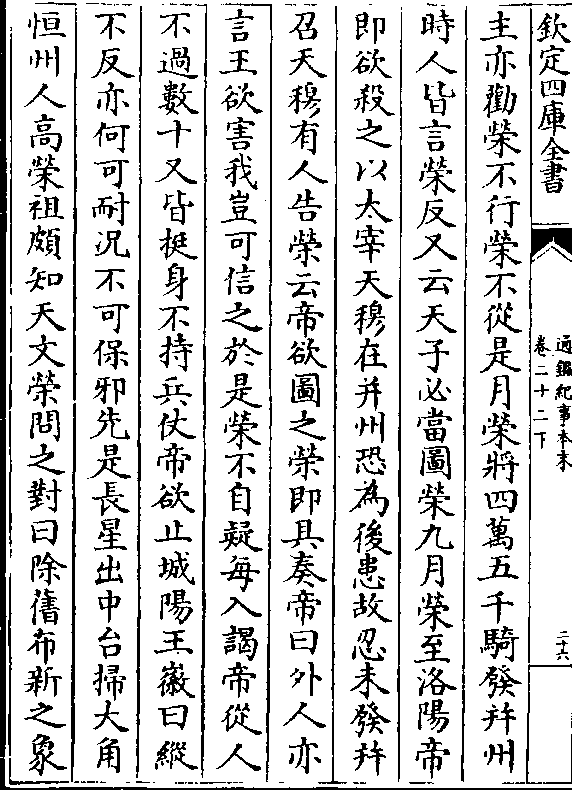 欽定四庫全書
通鑑紀事本末
卷二十二下
二十六
主亦勸榮不行榮不從是月榮將四萬五千騎發幷州
時人皆言榮反又云天子必當圖榮九月榮至洛陽帝
即欲殺之以太宰天穆在幷州恐為後患故忍未發幷
召天穆有人告榮云帝欲圖之榮即具奏帝曰外人亦
言王欲害我豈可信之於是榮不自疑每入謁帝從人
不過數十又皆挺身不持兵仗帝欲止城陽王徽曰縱
不反亦何可耐況不可保邪先是長星出中台掃大角
恒州人高榮祖頗知天文榮問之對曰除舊布新之象